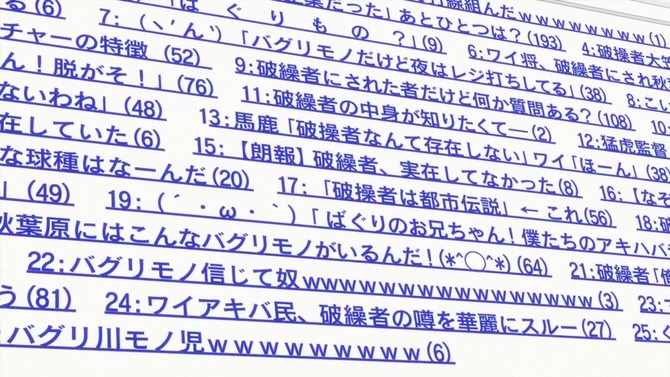 る(6) 7:(ヽ'ん')「バグリモノだけど夜はレジ打ちしてる」(38) 8:こし
ばぐりもの?」(9) 6:ワイ将、破繰者にされ秋
だった」あとひとつは?(193) 4:破操者大笠
組んだwwwwwwww(1)
チャーの特徴 (52) 9:破繰者にされた者だけど何か質問ある?(108) 10
ん!脱がそ!」(76) 11:破繰者の中身が知りたくて―(2) 12:猛虎監督
ないわね」(48) 13:馬鹿「破操者なんて存在しない」ワイ「ほーん」(38)
在していた(6) 15:【朗報】破繰者、実在してなかった(8) 16:【な
な球種はなーんだ(20) 17:「破操者は都市伝説」← これ(56) 18:破
」(49) 19:(´・ω・`)「ばぐりのお兄ちゃん!僕たちのアキハバ
秋葉原にはこんなバグリモノがいるんだ!(*^◯^*)(64) 21:破繰者「
22:バグリモノ信じて奴wwwwwwwwwwwwwwww(3) 23:
う(81) 24:ワイアキバ民、破繰者の噂を華麗にスルー(27) 25:く
:バグリ川モノ児wwwwwwwww(6)